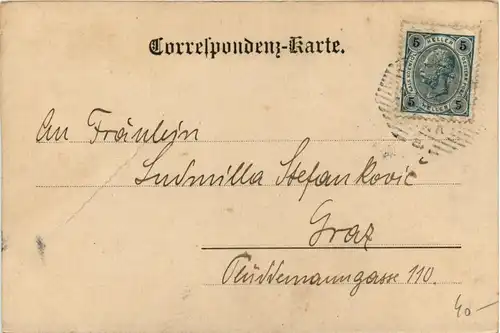 Correspondenz-Karte.
5 HELLER 5
5 HELLER 5
An Fräulein
Ludmilla Stefanković
Graz
Plüddemanngasse 110.
40-